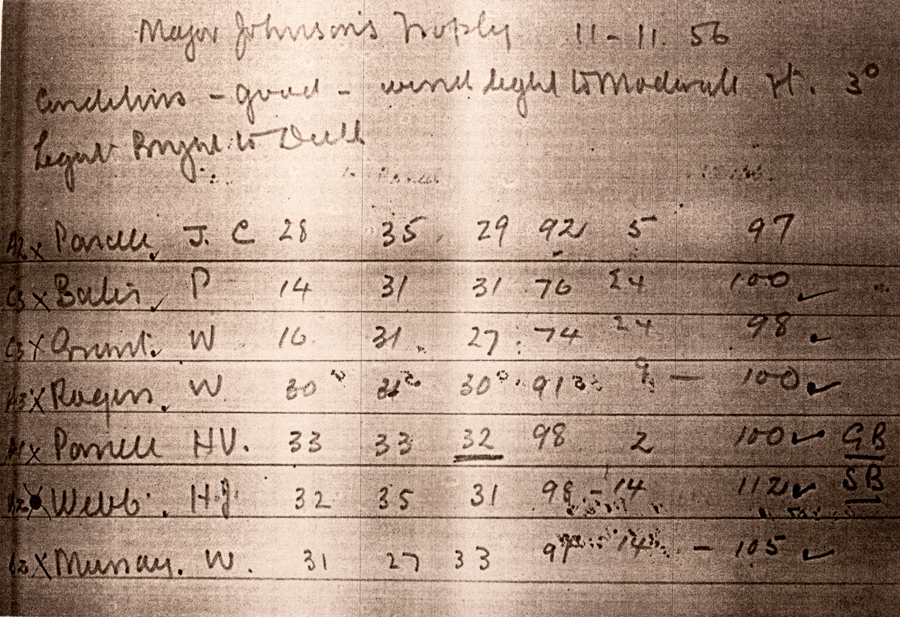 Major Johnson's Trophy 11-11. 56
Conditions - good - wind light to Moderate 3°
Light Bright to Dull
A2 X J. C 28 35 29 92 5 97
C3 X P 14 31 31 76 24 100 ✓
C3 X Grant. W 16 31 27 74 24 98 ✓
A3 X Rogers. W. 30 30 91 9 - 100 ✓
A1 X HV. 33 33 32 98 2 100 ✓ GB
A2 X Webb. H.J. 32 35 31 98 - 14 112 ✓ SB
X Murray. W. 31 27 33 91 14 - 105 ✓